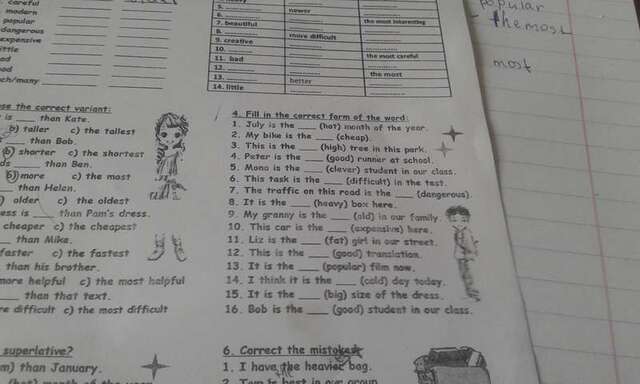 careful
modern
popular
dangerous
expensive
little
5. ______
6. ______ newer
7. beautiful the most interesting
8. ______ more difficult
9. creative
10. ______
11. bad the most careful
12. ______
13. ______ the most
14. little better
popular
the most
most
the correct variant:
is ___ than Kate.
b) taller c) the tallest
___ than Bob.
b) shorter c) the shortest
___ than Ben.
b) more c) the most
___ than Helen.
older c) the oldest
___ than Pam's dress.
cheaper c) the cheapest
___ than Mike.
faster c) the fastest
than his brother.
more helpful c) the most helpful
___ than that text.
c) the most difficult
superlative?
than January.
4. Fill in the correct form of the word:
1. July is the ___ (hot) month of the year.
2. My bike is the ___ (cheap).
3. This is the ___ (high) tree in this park.
4. Peter is the ___ (good) runner at school.
5. Mona is the ___ (clever) student in our class.
6. This task is the ___ (difficult) in the test.
7. The traffic on this road is the ___ (dangerous).
8. It is the ___ (heavy) box here.
9. My granny is the ___ (old) in our family.
10. This car is the ___ (expensive) here.
11. Liz is the ___ (fat) girl in our street.
12. This is the ___ (good) translation.
13. It is the ___ (popular) film now.
14. I think it is the ___ (cold) day today.
15. It is the ___ (big) size of the dress.
16. Bob is the ___ (good) student in our class.
6. Correct the mistakes:
1. I have the heavier bag.
2. Tom is best in our group.